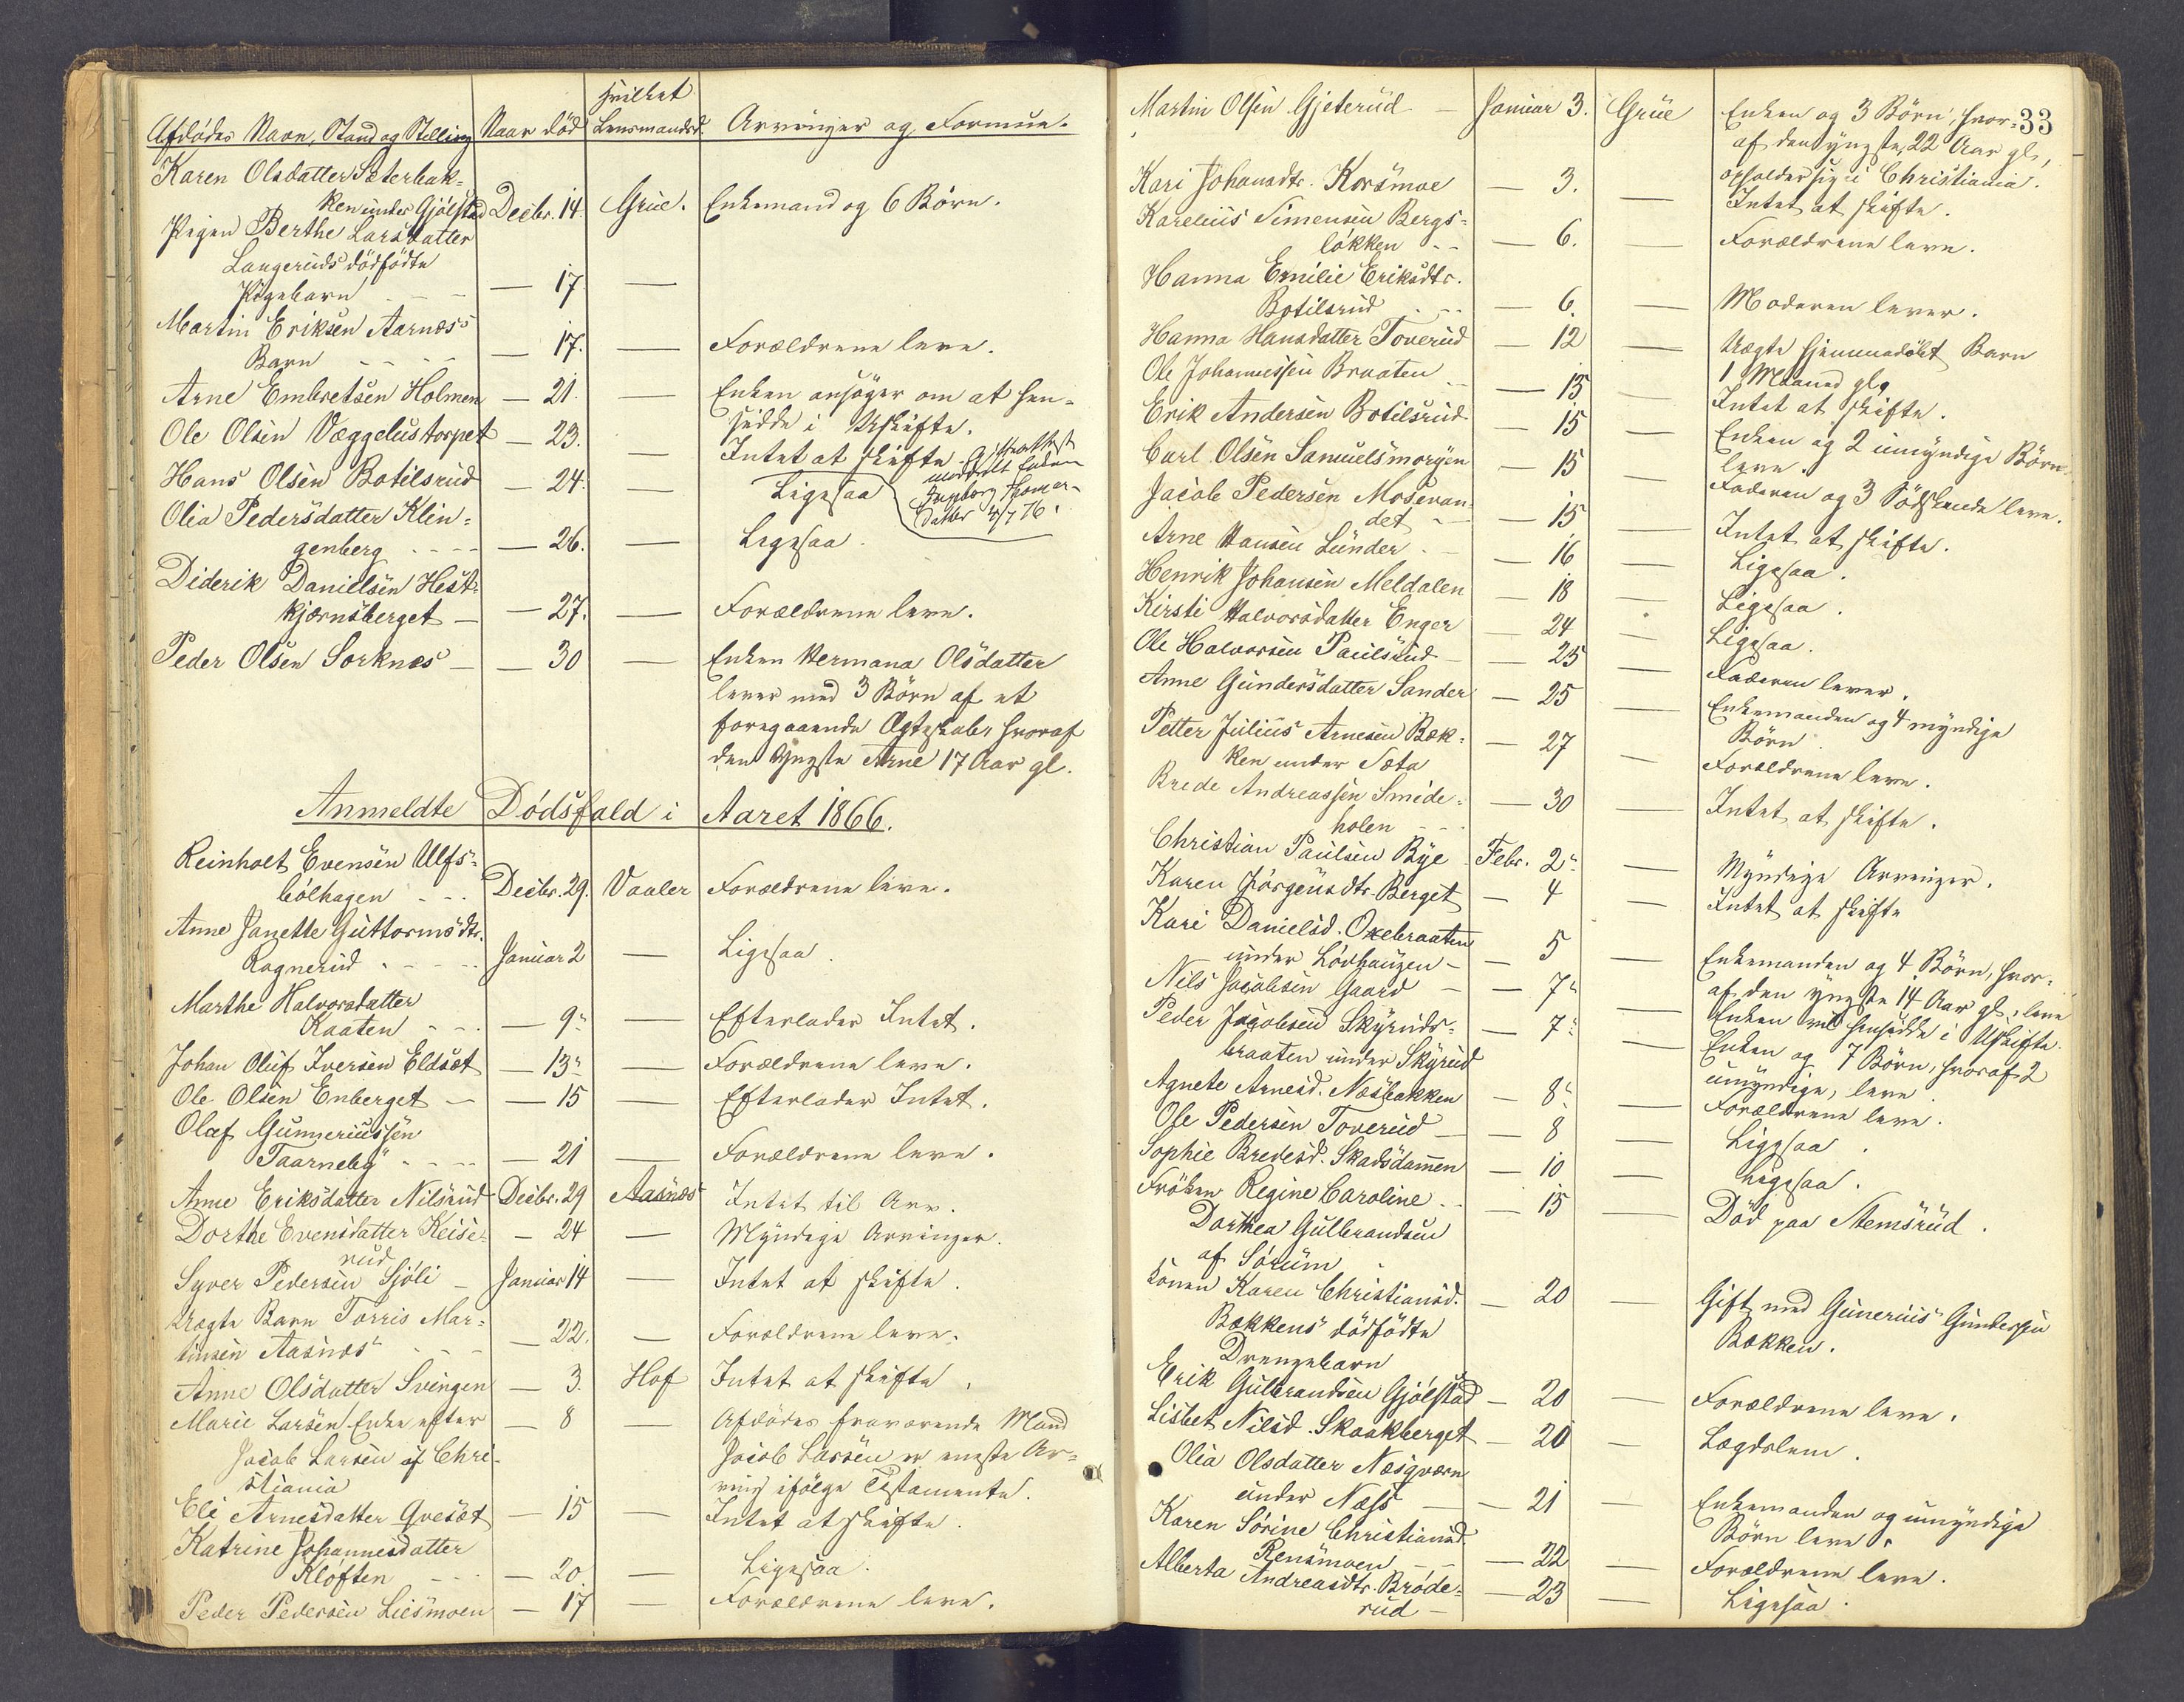 Hvilket
Afdødes Navn, Stand og Stilling Naar død Lensmandsd. Arvinger og Formue.
Karen Olsdatter Sæterbak-
ken under Gjølstad Decbr. 14. Grue. Enkemand og 6 Børn.
Pigen Berthe Larsdatter
Langeruds dødfødte
Pigebarn - - - — 17 —
Martin Eriksen Aarnæs's
Barn - - - - — 17. — Forældrene leve.
Arne Embretsen Holmen — 21. — Enken ansøger om at hen-
sidde i Uskifte.
Ole Olsen Væggelustorpet — 23. — Intet at skifte.
Hans Olsen Botilsrud — 24. — Ligesaa
Skifteattest
meddelt Enken
Ingeborg Thomas-
datter 4/7 76.
Olia Pedersdatter Klin-
genberg - - - - — 26. — Ligesaa.
Diderik Danielsen Hest-
kjærnsberget — — 27. — Forældrene leve.
Peder Olsen Sorknæs — — 30 — Enken Hermana Olsdatter
lever med 3 Børn af et
foregaaende Ægteskab, hvoraf
den Yngste Arne 17 Aar gl.
Anmeldte Dødsfald i Aaret 1866.
Reinholt Evensen Ulfs-
bølhagen - - - Decbr. 29. Vaaler Forældrene leve.
Anne Janette Guttormsdtr.
Rognerud - - - - Januar 2 — Ligesaa.
Marthe Halvorsdatter
Kaaten - - - — 9. — Efterlader Intet.
Johan Oluf Iversen Eldsæt — 13. — Forældrene leve.
Ole Olsen Enberget — — 15 — Efterlader Intet.
Olaf Gunneriussen
Taarneby - - - - — 21 — Forældrene leve.
Anne Eriksdatter Nilsrud Decbr. 29 Aasnæs Intet til Arv.
Dorthe Evensdatter Keise-
rud — 24 — Myndige Arvinger.
Syver Pedersen Sjøli — Januar 14 — Intet at skifte.
Uægte Barn Torris Mar-
tinsen Aasnæs - - - — 22. — Forældrene leve.
Anne Olsdatter Svingen — 3. Hof Intet at skifte.
Marie Larsen, Enke efter — 8 — Afdødes fraværende Mand
Jacob Larsen af Chri-
stiania Jacob Larsen er eneste Ar-
ving ifølge Testamente.
Eli Arnesdatter Qvesæt — 15 — Intet at skifte.
Katrine Johannesdatter
Kløften - - - — 20. — Ligesaa.
Peder Pedersen Liesmoen — 17 — Forældrene leve.
33
Martin Olsen Gjeterud — Januar 3. Grue Enken og 3 Børn, hvor-
af den yngste, 22 Aar gl.,
opholder sig i Christiania.
Kari Johansdtr. Korsmoe — 3. — Intet at skifte.
Karelius Simensen Bergs-
løkken - - — 6. — Forældrene leve.
Hanna Emilie Eriksdtr.
Botilsrud - - - — 6. — Moderen lever.
Hanna Hansdatter Toverud — 12 — Uægte hjemmedøbt Barn
1 Maaned gl.
Ole Johannessen Braaten - - — 13 — Intet at skifte.
Erik Andersen Botilsrud — 15 — Enken og 2 umyndige Børn
leve.
Carl Olsen Samuelsmorgen — 15 — Faderen og 3 Sødskende leve.
Jacob Pedersen Mosevan-
det - - — 15 — Intet at skifte.
Arne Hansen Lunder - - — 16 — Ligesaa.
Henrik Johansen Meldalen — 18 — Ligesaa.
Kirsti Halvorsdatter Enger — 24 — Ligesaa.
Ole Halvorsen Paulsrud — — 25 — Faderen lever.
Anne Gundersdatter Sander — 25 — Enkemanden og 4 myndige
Børn.
Petter Julius Arnesen Bæk-
ken under Sæta — 27 — Forældrene leve.
Brede Andreassen Smide-
holen - - - — 30 — Intet at skifte.
Christian Paulsen Bye Febr. 2. — Myndige Arvinger.
Karen Jørgensdtr. Berget — 4 — Intet at skifte
Kari Danielsd. Oxebraaten
under Løvhaugen — — 5 — Enkemanden og 4 Børn, hvor-
af den yngste 14 Aar gl., leve
Nils Jacobsen Gaard — — 7. — Enken vil hensidde i Uskifte.
Peder Jacobsen Skyruds-
braaten under Skyrud — 7. — Enken og 7 Børn, hvoraf 2
umyndige, leve.
Agnete Arnesd. Næsbakken — 8. — Forældrene leve.
Ole Pedersen Toverud — — 8 — Ligesaa.
Sophie Bredesd. Skadsdammen — 10 — Ligesaa.
Frøken Regine Caroline - - — 15 — Død paa Stemsrud.
Dorthea Gulbrandsen
af Sørum
Konen Karen Christiansd. — 20 — Gift med Gunerius Gundersen
Bækkens dødfødte Bækken.
Drengebarn
Erik Gulbrandsen Gjølstad — 20 — Forældrene leve.
Lisbet Nilsd. Skaakberget — 20 — Lægdslem.
Olia Olsdatter Næsqværn
under Næss — — 21 — Enkemanden og umyndige
Børn leve.
Karen Sørine Christiansd.
Rensmoen - - — 22 — Forældrene leve.
Alberta Andreasdtr. Brøde-
rud — — 23 — Ligesaa.